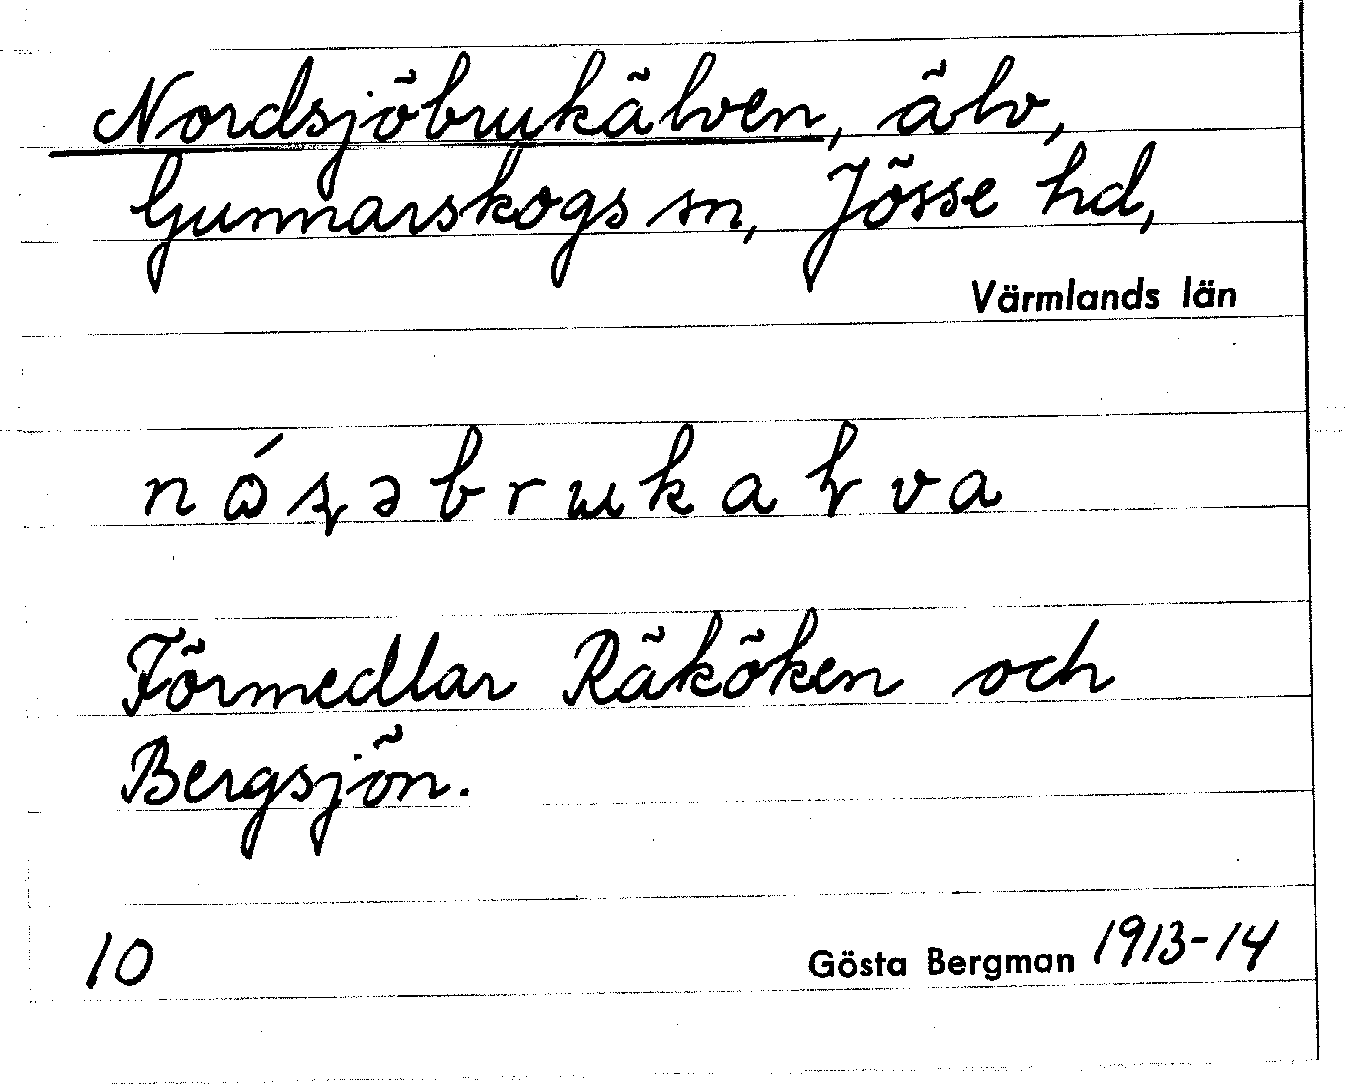 Nordsjöbrukälven, älv,
Gunnarskogs sn, Jösse hd,
Värmlands län
Förmedlar Räköken och
Bergsjön.
10 Gösta Bergman 1913-14